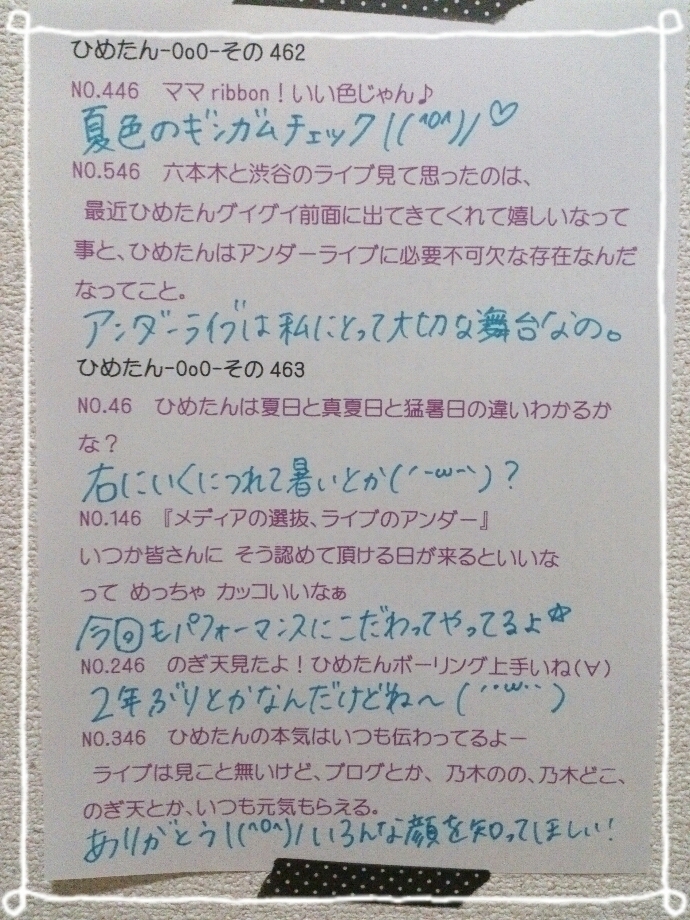 ひめたん-OoO-その462
NO.446　ママribbon！いい色じゃん♪
夏色のギンガムチェック\(^o^)/♡
NO.546　六本木と渋谷のライブ見て思ったのは、
最近ひめたんグイグイ前面に出てきてくれて嬉しいなって
事と、ひめたんはアンダーライブに必要不可欠な存在なんだ
なってこと。
アンダーライブは私にとって大切な舞台なの。
ひめたん-OoO-その463
NO.46　ひめたんは夏日と真夏日と猛暑日の違いわかるか
な？
右にいくにつれて暑いとか(´-ω-`)？
NO.146　『メディアの選抜、ライブのアンダー』
いつか皆さんに そう認めて頂ける日が来るといいな
って めっちゃ カッコいいなぁ
今回もパフォーマンスにこだわってやってるよ☆
NO.246　のぎ天見たよ！ひめたんボーリング上手いね(∀)
2年ぶりとかなんだけどね〜(´･ω･`)
NO.346　ひめたんの本気はいつも伝わってるよー
ライブは見こと無いけど、ブログとか、乃木のの、乃木どこ、
のぎ天とか、いつも元気もらえる。
ありがとう\(^o^)/いろんな顔を知ってほしい！